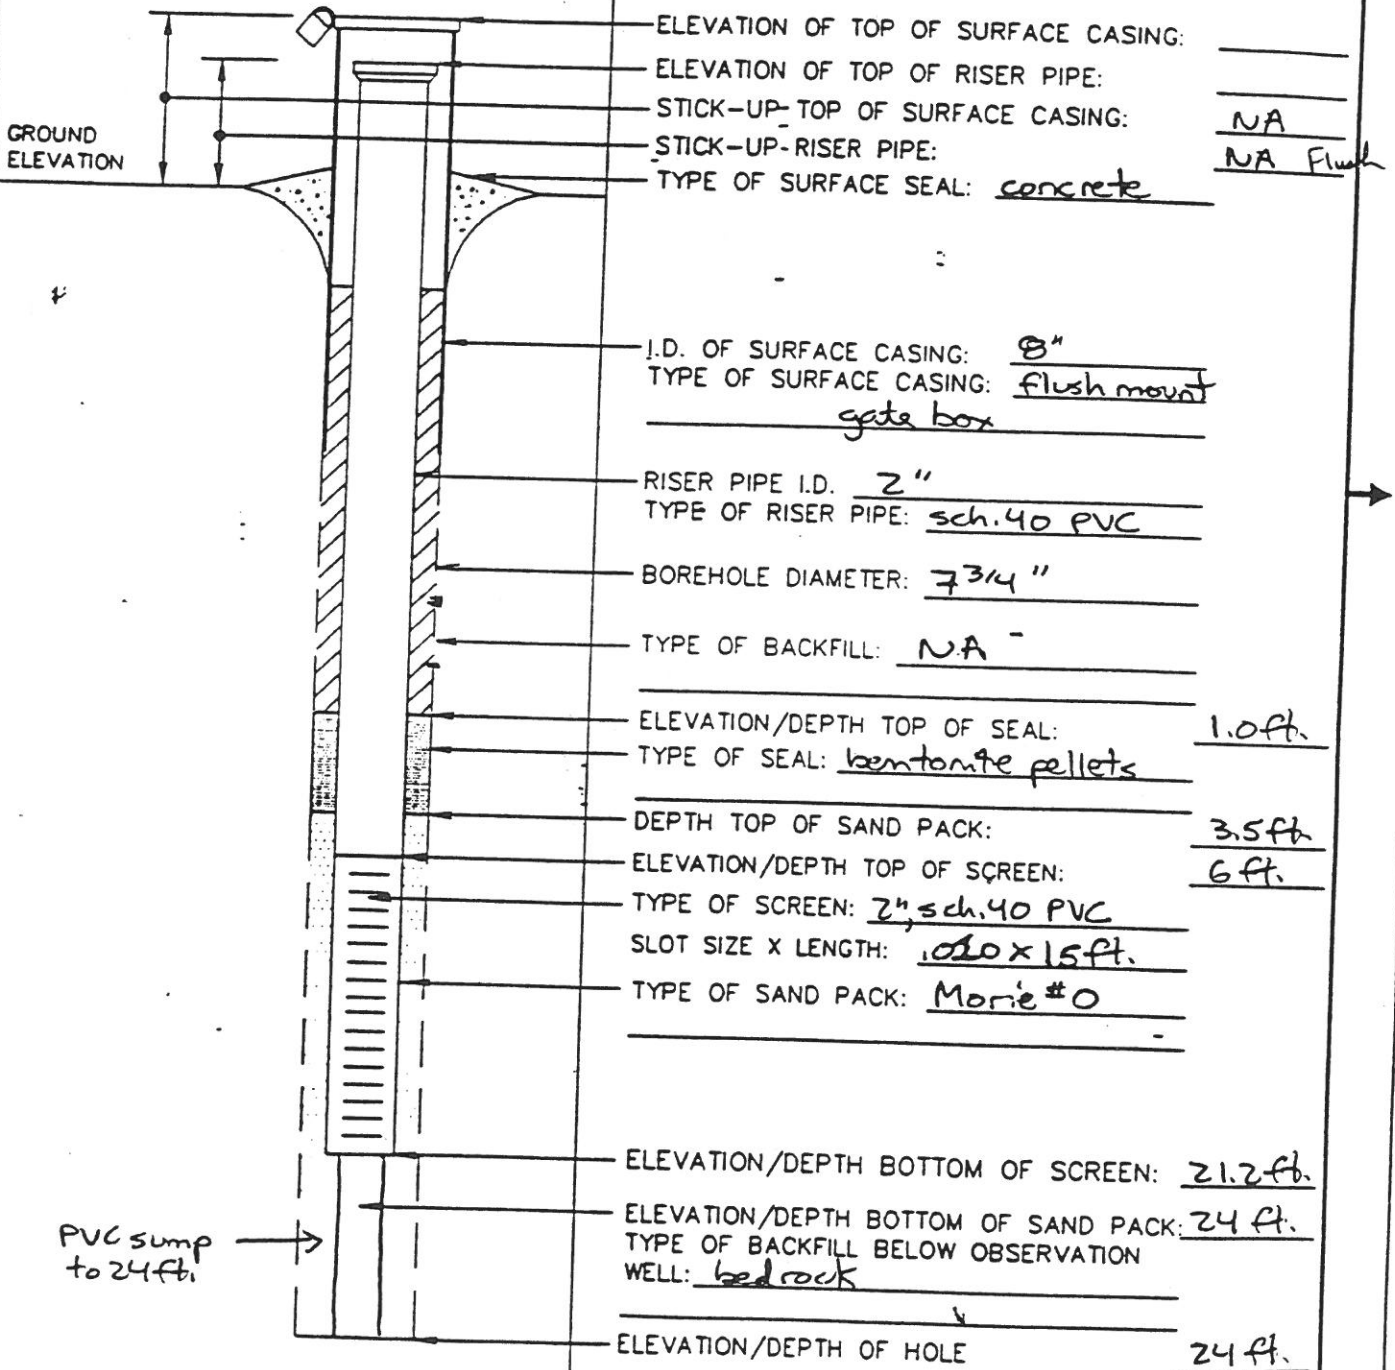 ELEVATION OF TOP OF SURFACE CASING:
ELEVATION OF TOP OF RISER PIPE:
STICK-UP-TOP OF SURFACE CASING: NA
GROUND ELEVATION
STICK-UP-RISER PIPE: NA Flush
TYPE OF SURFACE SEAL: concrete
I.D. OF SURFACE CASING: 8"
TYPE OF SURFACE CASING: flush mount
gate box
RISER PIPE I.D. 2"
TYPE OF RISER PIPE: sch.40 PVC
BOREHOLE DIAMETER: 7 3/4"
TYPE OF BACKFILL: NA
ELEVATION/DEPTH TOP OF SEAL: 1.0ft.
TYPE OF SEAL: bentonite pellets
DEPTH TOP OF SAND PACK: 3.5ft.
ELEVATION/DEPTH TOP OF SCREEN: 6 ft.
TYPE OF SCREEN: 2", sch.40 PVC
SLOT SIZE X LENGTH: .010 x 15ft.
TYPE OF SAND PACK: Morie #0
ELEVATION/DEPTH BOTTOM OF SCREEN: 21.2ft.
ELEVATION/DEPTH BOTTOM OF SAND PACK: 24 ft.
TYPE OF BACKFILL BELOW OBSERVATION
WELL: bedrock
PVC sump
to 24ft.
ELEVATION/DEPTH OF HOLE 24 ft.